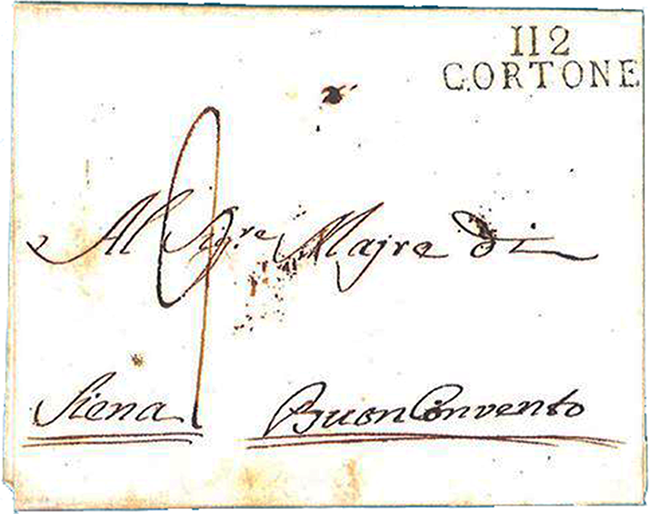 112
CORTONE
Al Sigre Majre di
Siena Buon Convento